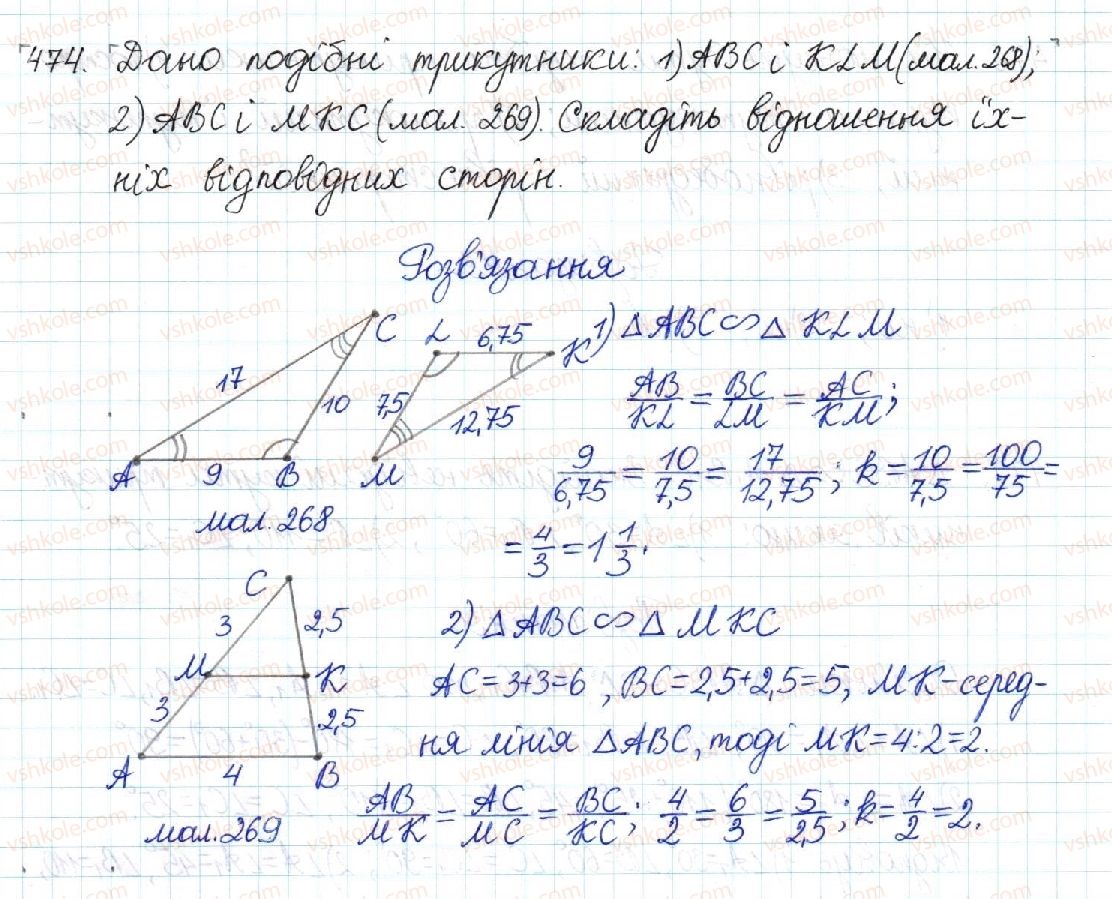 474. Дано подібні трикутники: 1) ABC і KLM (мал. 268);
2) ABC і MKC (мал. 269). Складіть відношення їх-
ніх відповідних сторін.
Розв'язання
C L 6,75 K
17 10 7,5 12,75
A 9 B M
мал. 268
1) △ABC ∽ △KLM
AB/KL = BC/LM = AC/KM;
9/6,75 = 10/7,5 = 17/12,75; k = 10/7,5 = 100/75 =
= 4/3 = 1 1/3.
C
3 2,5
M K
3 2,5
A 4 B
мал. 269
2) △ABC ∽ △MKC
AC=3+3=6, BC=2,5+2,5=5, MK-серед-
ня лінія △ABC, тоді MK=4:2=2.
AB/MK = AC/MC = BC/KC; 4/2 = 6/3 = 5/2,5; k = 4/2 = 2.
vshkole.com